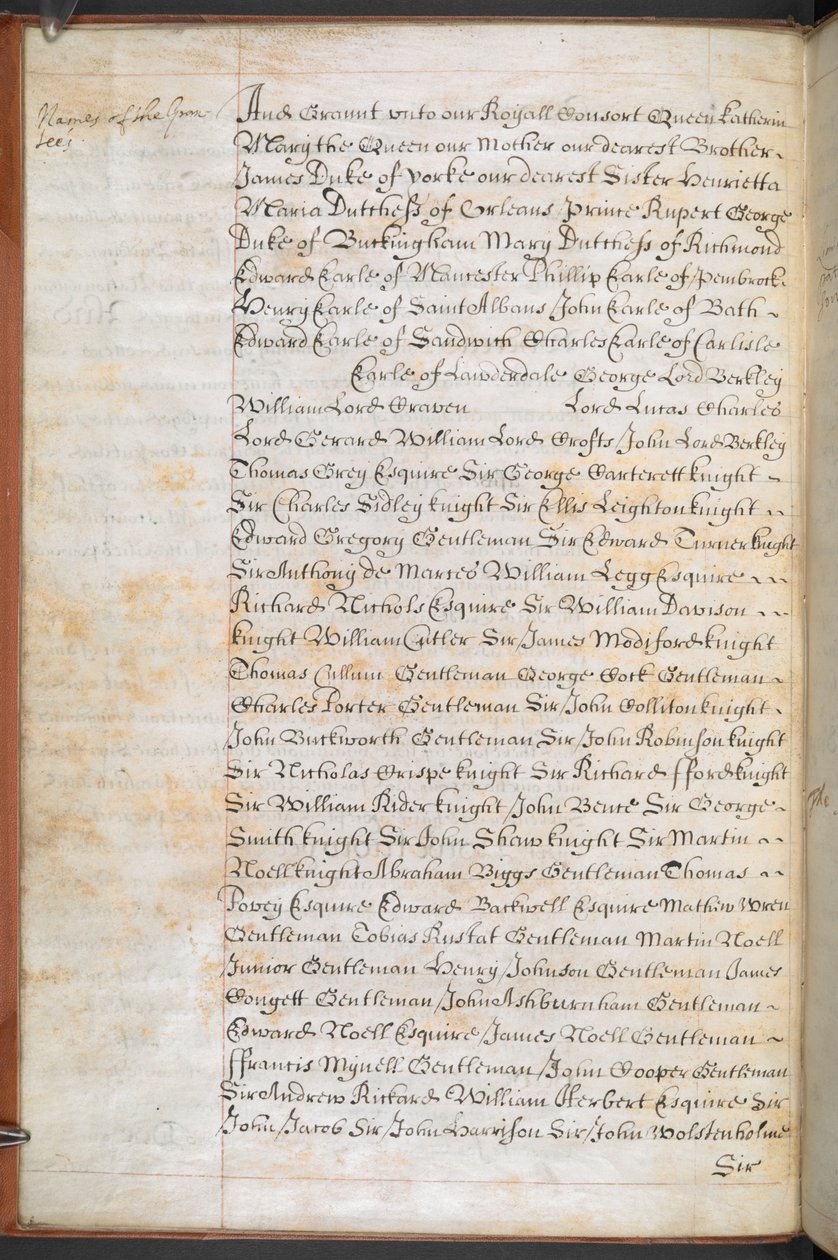 Names of the Gran-
tees
And Graunt unto our Royall Consort Queen Katherin
Mary the Queen our Mother our dearest Brother
James Duke of Yorke our dearest Sister Henrietta
Maria Dutchess of Orleans Prince Rupert George
Duke of Buckingham Mary Dutchess of Richmond
Edward Earle of Mancester Phillip Earle of Pembrock
Henry Earle of Saint Albans John Earle of Bath
Edward Earle of Sandwich Charles Earle of Carlisle
Earle of Lawderdale George Lord Berkley
William Lord Craven Lord Lucas Charles
Lord Gerard William Lord Crofts John Lord Berkley
Thomas Grey Esquire Sir George Carterett knight
Sir Charles Sidley knight Sir Ellis Leighton knight
Edward Gregory Gentleman Sir Edward Turner knight
Sir Anthony de Marces William Legg Esquire
Richard Nichols Esquire Sir William Davison
knight William Cutler Sir James Modiford knight
Thomas Cullum Gentleman George Cock Gentleman
Charles Porter Gentleman Sir John Colliton knight
John Buckworth Gentleman Sir John Robinson knight
Sir Nicholas Crispe knight Sir Richard fford knight
Sir William Rider knight John Bence Sir George
Smith knight Sir John Shaw knight Sir Martin
Noell knight Abraham Biggs Gentleman Thomas
Povey Esquire Edward Backwell Esquire Mathew Wren
Gentleman Tobias Rustat Gentleman Martin Noell
Junior Gentleman Henry Johnson Gentleman James
Congett Gentleman John Ashburnham Gentleman
Edward Noell Esquire James Noell Gentleman
ffrancis Mynell Gentleman John Cooper Gentleman
Sir Andrew Rickard William Herbert Esquire Sir
John Jacob Sir John Harrison Sir John Wolstenholme
Sir